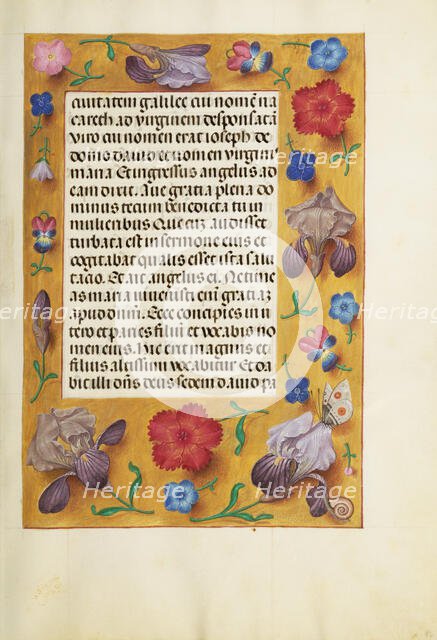 cuitatem galilee cui nomen na
careth ad virginem desponsatā
viro cui nomen erat ioseph de
domo dauid et nomen virginis
maria Et ingressus angelus ad
eam dixit. Aue gratia plena do
minus tecum benedicta tu in
mulieribus Que cuȝ audisset
turbata est in sermone eius et
cogitabat qualis esset ista salu
tacio. Et ait angelus ei. Ne time
as maria inuenisti eni gratiaȝ
apud dnm. Ecce concipies in u
tero et paries filiū et vocabis no
men eius. Hic erit magnus et
filius altissimi vocabitur Et da
bit illi dns deus sedem dauid pa
Heritage Images